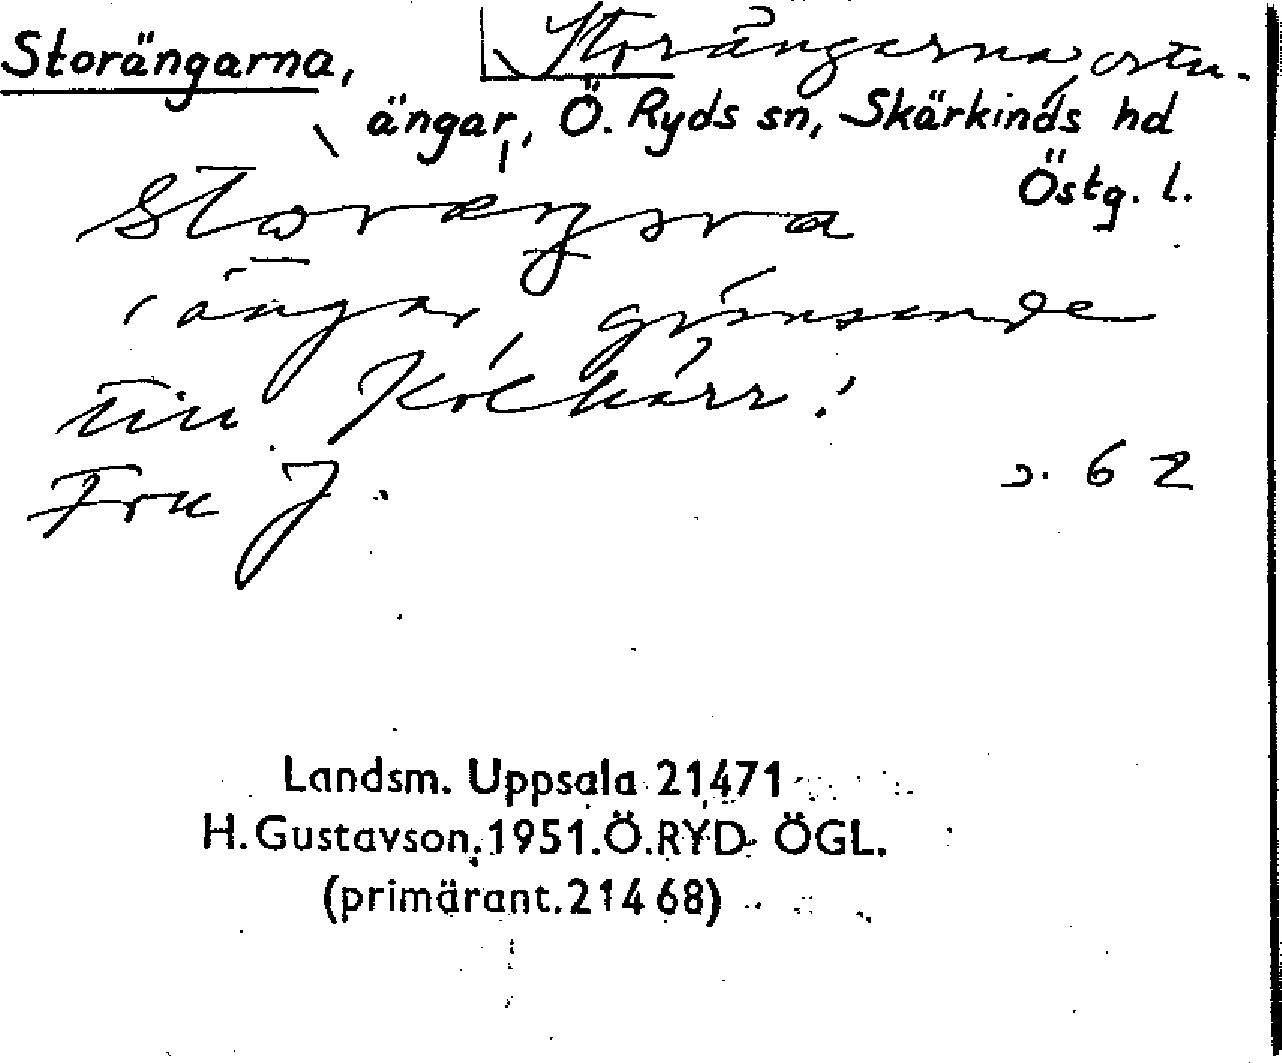 Storängarna, Storängarna, ortn.
ängar, Ö. Ryds sn, Skärkinds hd
Östg. l.
ängar, gränsande
till Kolkärr.
Fru J. s. 62
Landsm. Uppsala 21471
H. Gustavson. 1951. Ö. RYD ÖGL.
(primärant. 21468)